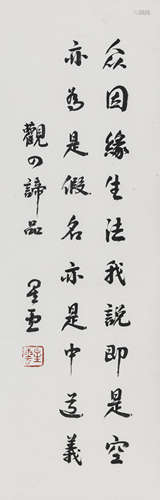 众因緣生法我說即是空
亦為是假名亦是中道義
觀四諦品
星雲